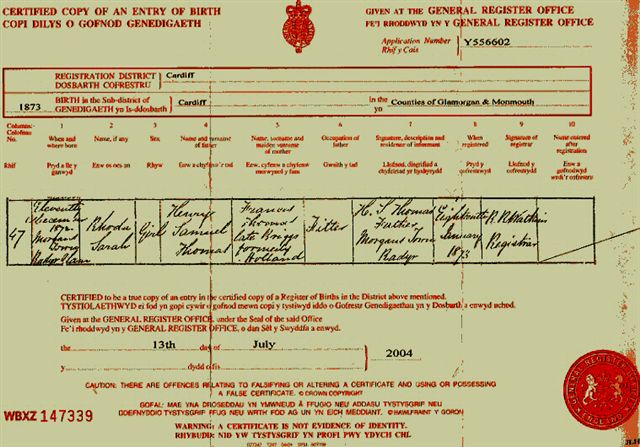 CERTIFIED COPY OF AN ENTRY OF BIRTH
COPI DILYS O GOFNOD GENEDIGAETH
GIVEN AT THE GENERAL REGISTER OFFICE
FE'I RHODDWYD YN Y GENERAL REGISTER OFFICE
Application Number Y556602
Rhif y Cais
REGISTRATION DISTRICT Cardiff
DOSBARTH COFRESTRU
1873 BIRTH in the Sub-district of Cardiff in the Counties of Glamorgan & Monmouth
GENEDIGAETH yn Is-ddosbarth yn
Columns:- 1 2 3 4 5 6 7 8 9 10
Colofnau
No. When and where born Name, if any Sex Name and surname of father Name, surname and maiden surname of mother Occupation of father Signature, description and residence of informant When registered Signature of registrar Name entered after registration
Rhif Pryd a lle y ganwyd Enw os oes un Rhyw Enw a chyfenw'r tad Enw, cyfenw a chyfenw morwynol y fam Gwaith y tad Llofnod, disgrifiad a chyfeiriad yr hysbysydd Pryd y cofrestrwyd Llofnod y cofrestrydd Enw a gofnodwyd wedi'r cofrestru
47 Eleventh December 1872 Morgans Town Radyr Glam
Rhoda Sarah
Girl
Henry Samuel Thomas
Frances Thomas late formerly Holland
Fitter
H. S. Thomas Father Morgans Town Radyr
Eighteenth January 1873
Watkins Registrar
CERTIFIED to be a true copy of an entry in the certified copy of a Register of Births in the District above mentioned.
TYSTIOLAETHWYD ei fod yn gopi cywir o gofnod mewn copi y tystiwyd iddo o Gofrestr Genedigaethau yn y Dosbarth a enwyd uchod.
Given at the GENERAL REGISTER OFFICE, under the Seal of the said Office
Fe'i rhoddwyd yn y GENERAL REGISTER OFFICE, o dan Sêl y Swyddfa a enwyd.
the 13th day of July 2004
y dydd o fis
CAUTION: THERE ARE OFFENCES RELATING TO FALSIFYING OR ALTERING A CERTIFICATE AND USING OR POSSESSING
A FALSE CERTIFICATE. © CROWN COPYRIGHT
GOFAL: MAE YNA DROSEDDAU YN YMWNEUD Â FFUGIO NEU ADDASU TYSTYSGRIF NEU
DDEFNYDDIO TYSTYSGRIF FFUG NEU WRTH FOD AG UN YN EICH MEDDIANT. © HAWLFRAINT Y GORON
WBXZ 147339
WARNING: A CERTIFICATE IS NOT EVIDENCE OF IDENTITY.
RHYBUDD: NID YW TYSTYSGRIF YN PROFI PWY YDYCH CHI.
GENERAL REGISTER OFFICE
ENGLAND